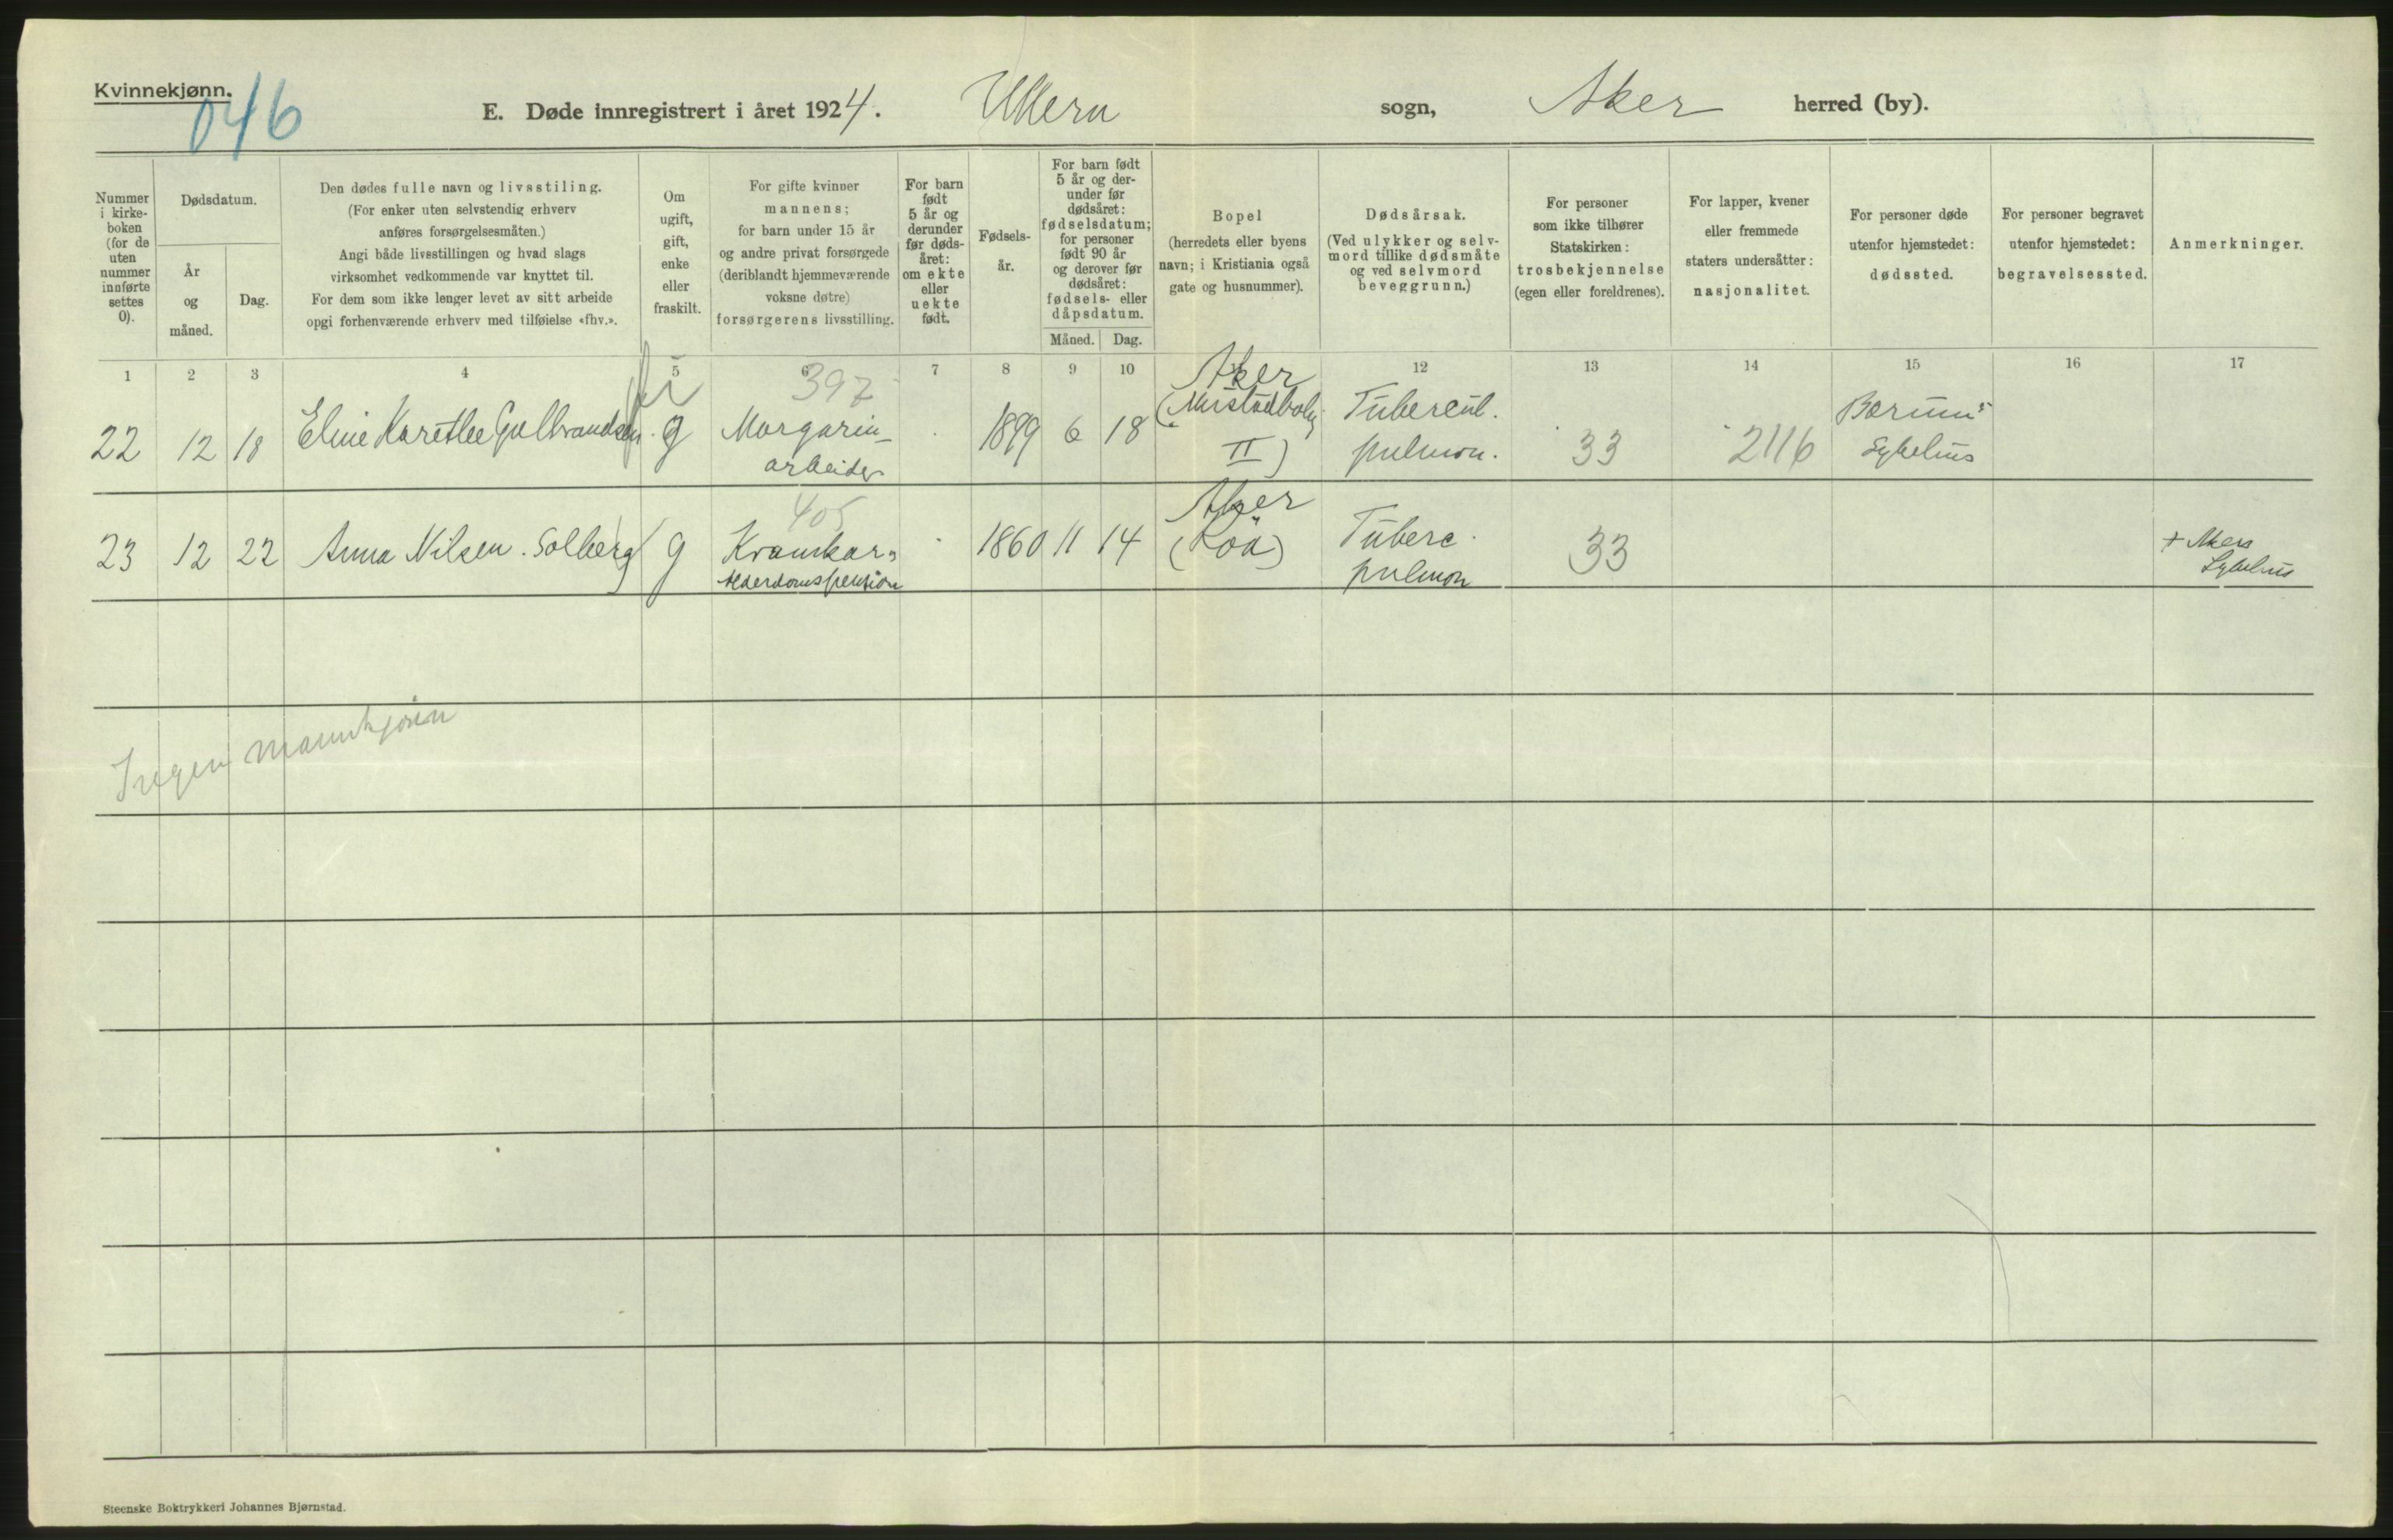 Kvinnekjønn.
046
E. Døde innregistrert i året 1924. Ullern sogn, Aker herred (by).
Nummer
i kirke-
boken
(for de
uten
nummer
innførte
settes
0).
Dødsdatum.
År
og
måned.
Dag.
Den dødes fulle navn og livsstiling.
(For enker uten selvstendig erhverv
anføres forsørgelsesmåten.)
Angi både livsstillingen og hvad slags
virksomhet vedkommende var knyttet til.
For dem som ikke lenger levet av sitt arbeide
opgi forhenværende erhverv med tilføielse «fhv.».
Om
ugift,
gift,
enke
eller
fraskilt.
For gifte kvinner
mannens;
for barn under 15 år
og andre privat forsørgede
(deriblandt hjemmeværende
voksne døtre)
forsørgerens livsstilling.
For barn
født
5 år og
derunder
før døds-
året:
om ekte
eller
uekte
født.
Fødsels-
år.
For barn født
5 år og der-
under før
dødsåret:
fødselsdatum;
for personer
født 90 år
og derover før
dødsåret:
fødsels- eller
dåpsdatum.
Måned.
Dag.
Bopel
(herredets eller byens
navn; i Kristiania også
gate og husnummer).
Dødsårsak.
(Ved ulykker og selv-
mord tillike dødsmåte
og ved selvmord
beveggrunn.)
For personer
som ikke tilhører
Statskirken:
trosbekjennelse
(egen eller foreldrenes).
For lapper, kvener
eller fremmede
staters undersåtter:
nasjonalitet.
For personer døde
utenfor hjemstedet:
dødssted.
For personer begravet
utenfor hjemstedet:
begravelsessted.
Anmerkninger.
1 2 3 4 5 6 7 8 9 10 12 13 14 15 16 17
22 12 18 Eline Karethe Gulbrandsen g
397
Margarin-
arbeider
1899 6 18
Aker
(Mustadbolig
II)
Tubercul.
pulmon.
33
2116
Bærums
Sykehus
23 12 22 Anna Nilsen Solberg g
405
Kramkar,
Alderdomspension
1860 11 14
Aker
(Röa)
Tuberc.
pulmon
33
+ Akers
Sykehus
Ingen Mannkjønn
Steenske Boktrykkeri Johannes Bjørnstad.